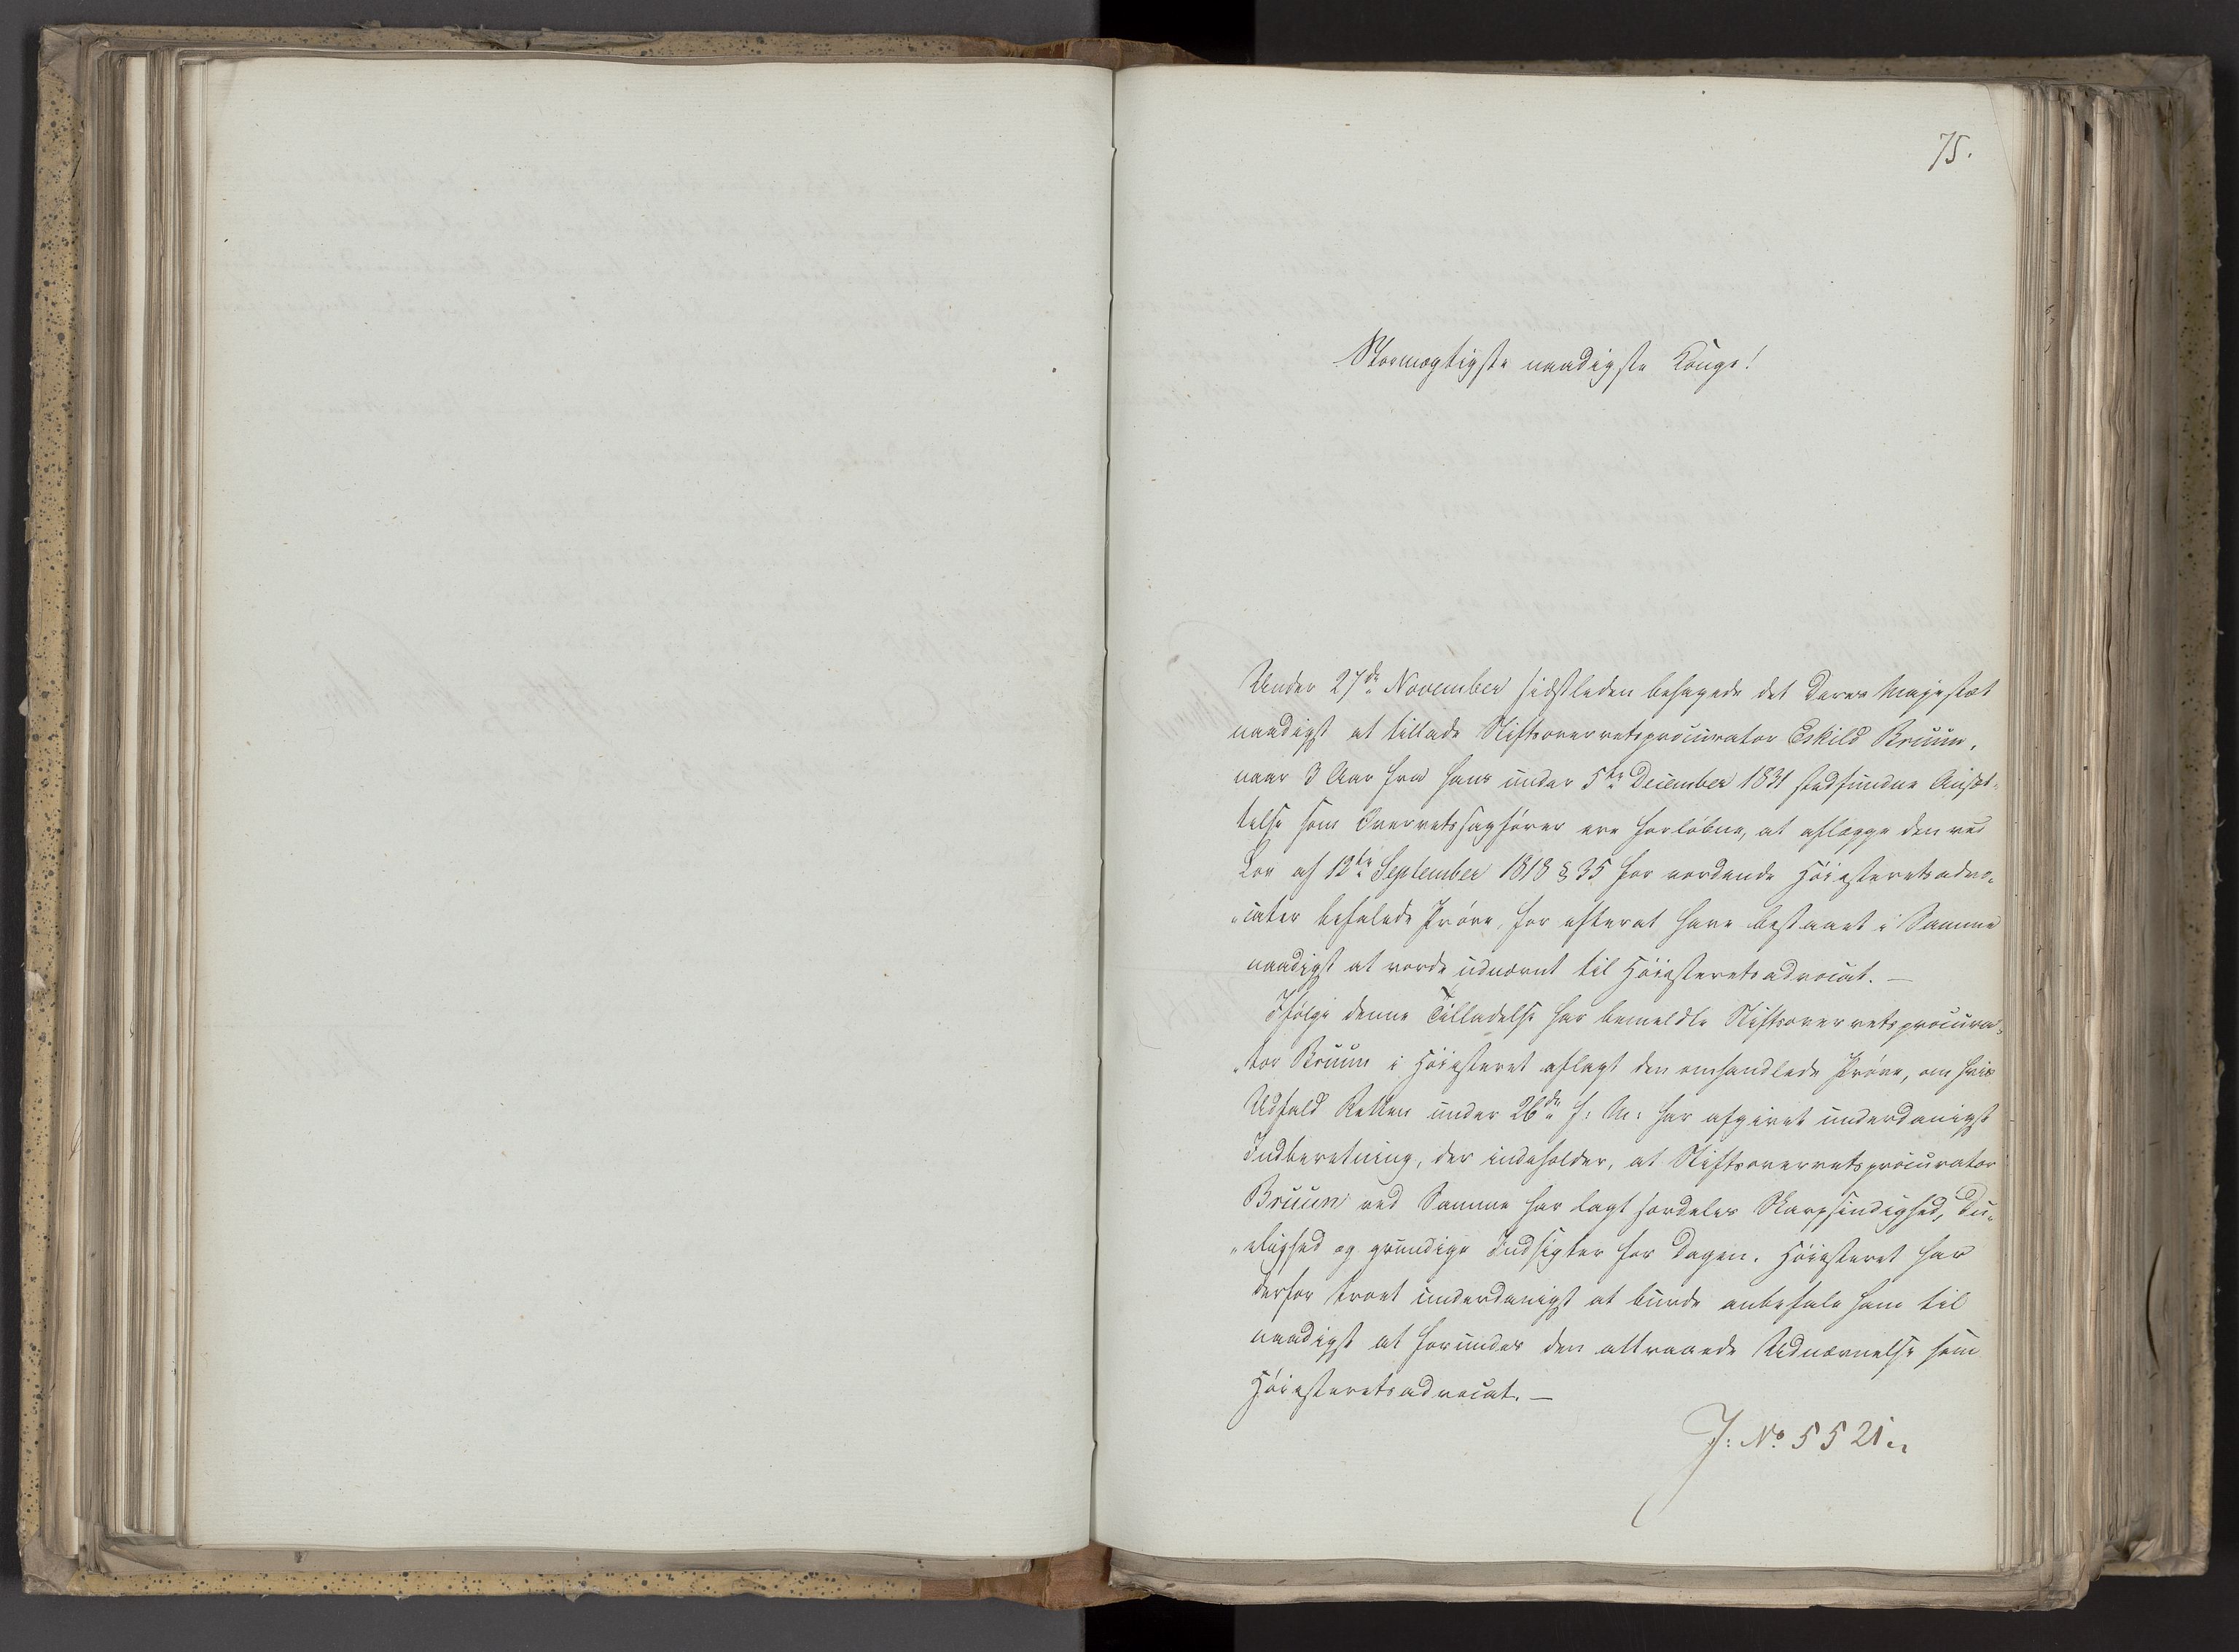 75.
Stormægtigste naadigste Konge!
Under 27de November sidstleden behagede det Deres Majestæt
naadigst at tillade Stiftsoverretsprocurator Eskild Bruun,
naar 3 Aar fra hans under 5te December 1831 stedfundne Ansæt-
telse som Overretssagfører ere forløbne, at aflægge den ved
Lov af 12te September 1818 § 35 for vordende Høiesteretsadvo-
„cater befalede Prøve, for efterat have bestaaet i Samme
naadigst at vorde udnævnt til Høiesteretsadvocat. —
Ifølge denne Tilladelse har bemeldte Stiftsoverretsprocura-
„tor Bruun i Høiesteret aflagt den omhandlede Prøve, om hvis
Udfald Retten under 26de f: M: har afgivet underdanigst
Indberetning, der indeholder, at Stiftsoverretsprocurator
Bruun ved Samme har lagt fordeles Skarpsindighed, Du-
„elighed og grundige Indsigter for Dagen. Høiesteret har
derfor troet underdanigst at burde anbefale ham til
naadigst at forundes den attraaede Udnævnelse som
Høiesteretsadvocat. —
J: No 5521.